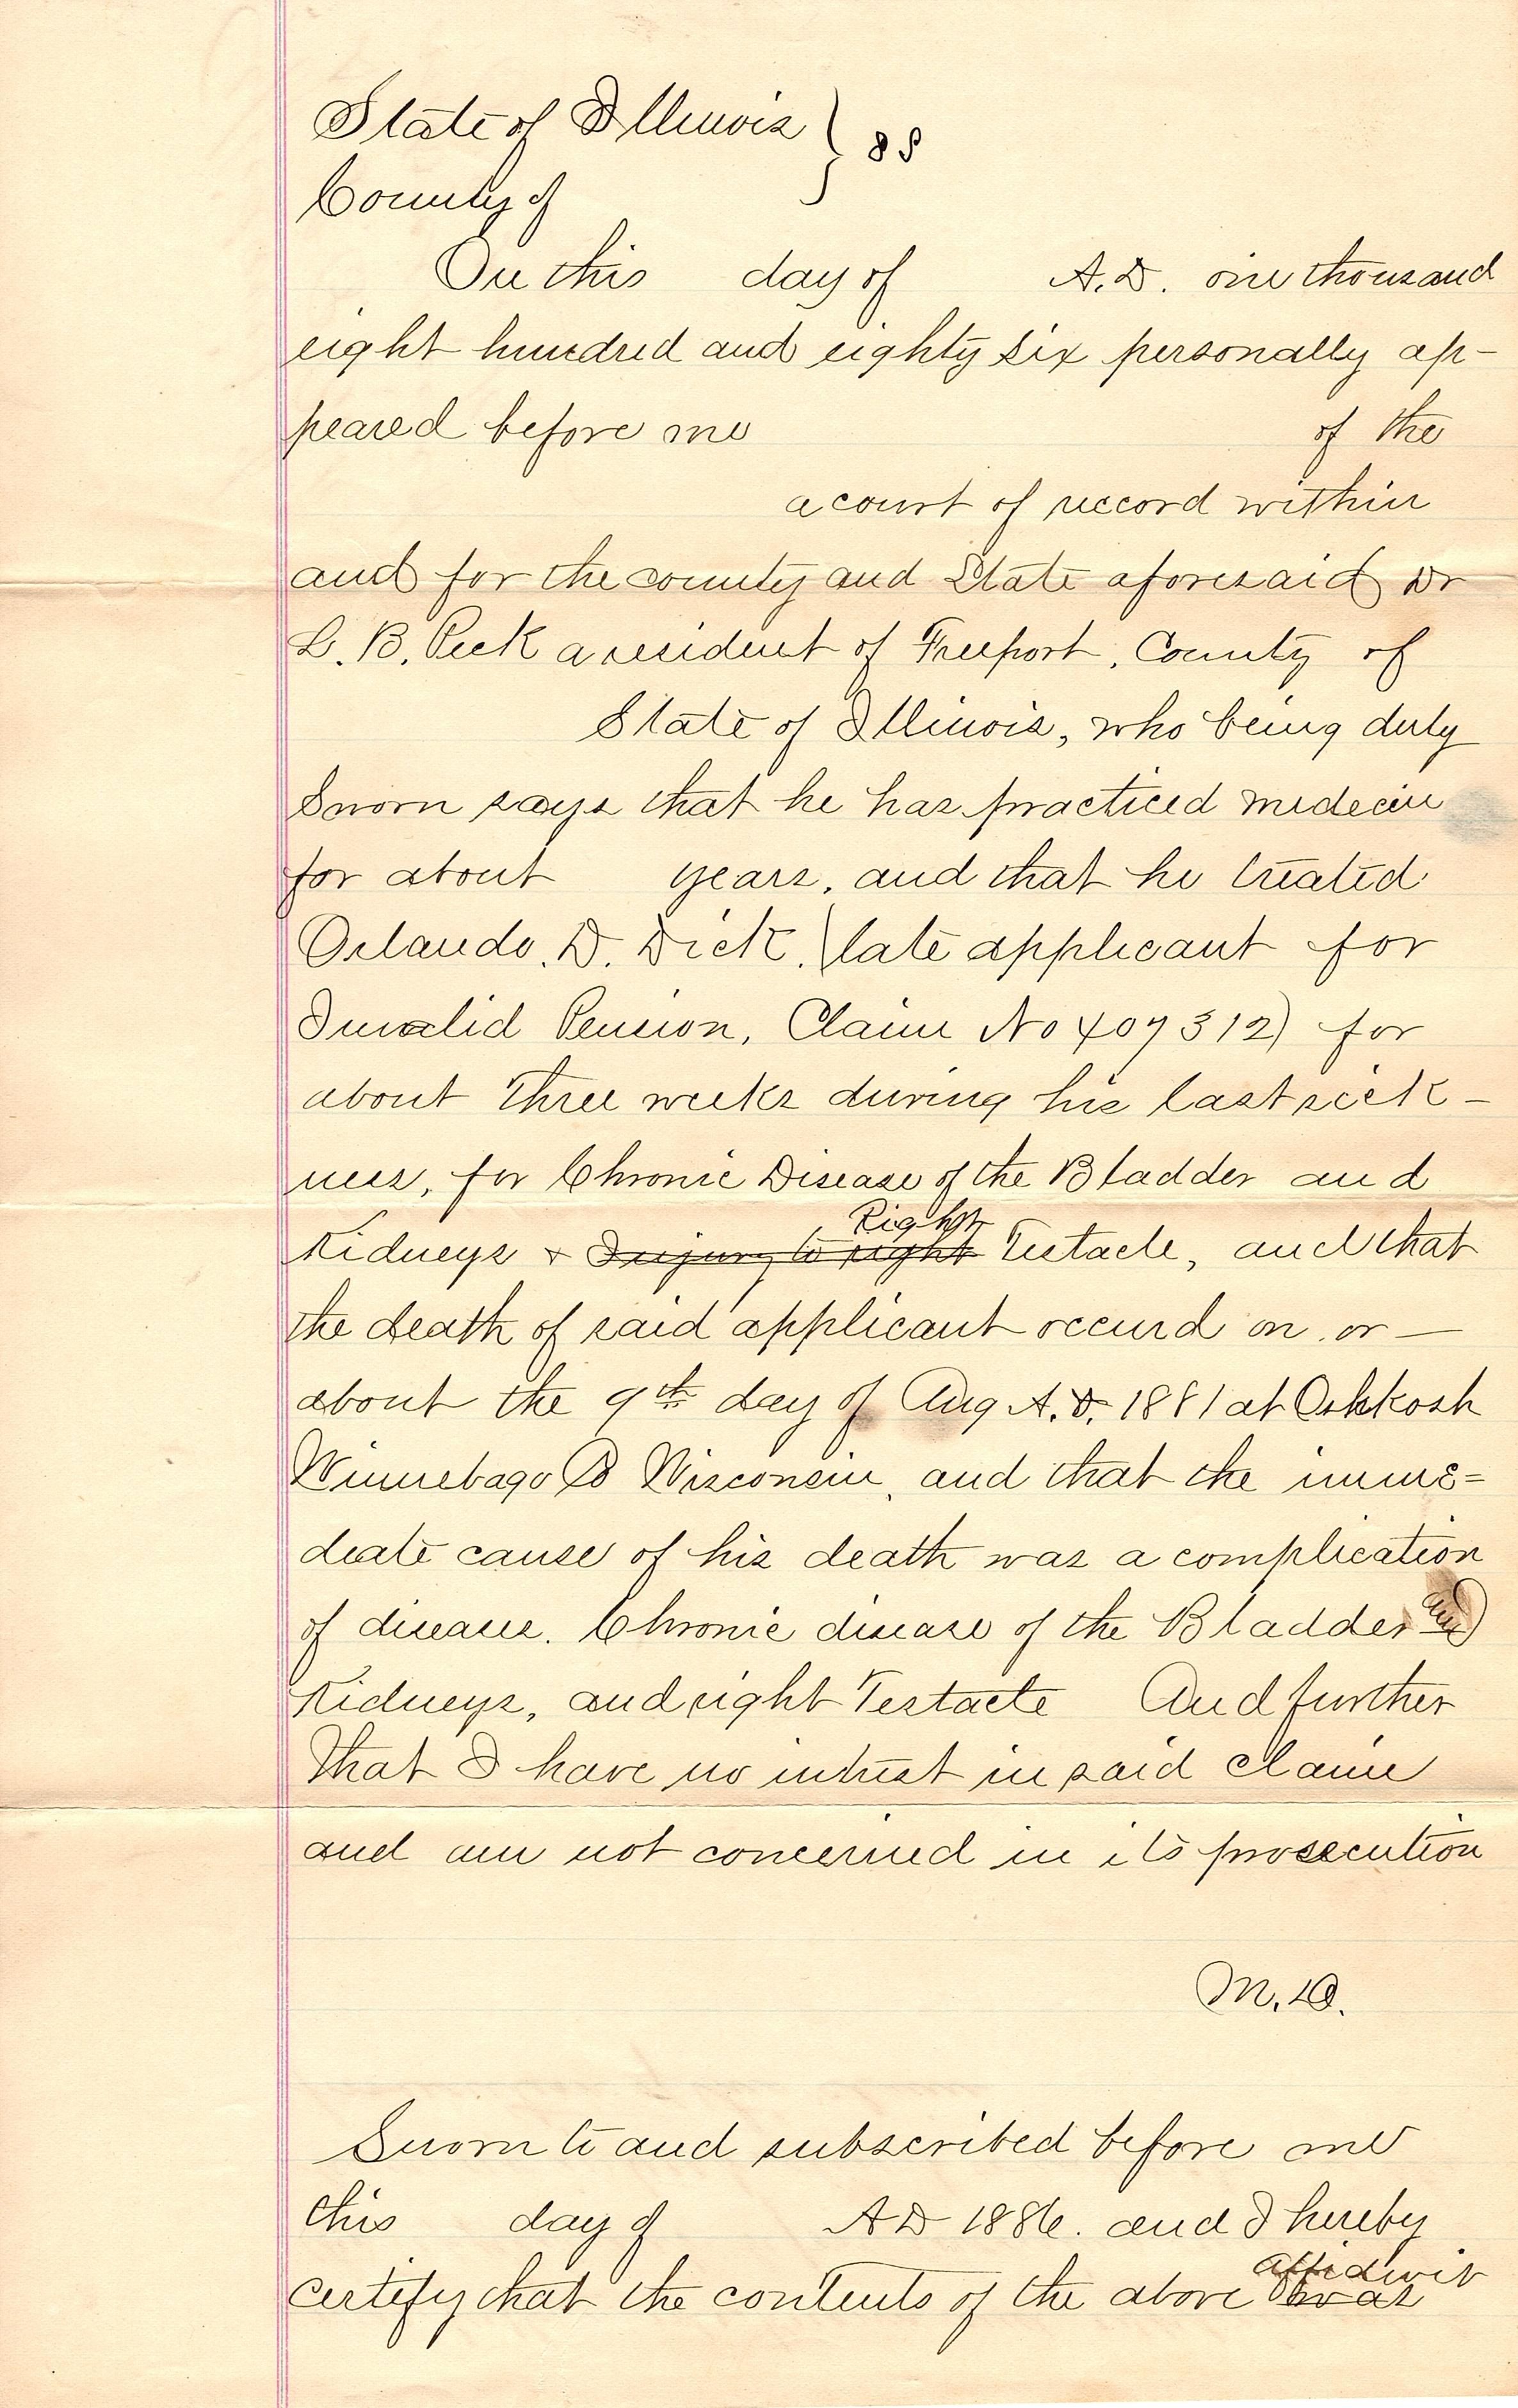 State of Illinois } SS
County of
On this day of A.D. one thousand
eight hundred and eighty six personally ap-
peared before me of the
a court of record within
and for the county and State aforesaid Dr
L. B. Peck a resident of Freeport, County of
State of Illinois, who being duly
Sworn says that he has practiced medecin
for about years, and that he treated
Orlando. D. Dick. (late applicant for
Invalid Pension, Claim No 407312) for
about three weeks during his last sick-
ness, for Chronic Disease of the Bladder and
Right
Kidneys + Injury to right Testacle, and that
the death of said applicant occurd on or —
about the 9th day of Aug A.D. 1881 at Oshkosh
Winnebago Co Wisconsin, and that the imme=
diate cause of his death was a complication
of diseases. Chronic disease of the Bladder and
Kidneys, and right Testacle And further
that I have no intrest in said claim
and am not concerned in its prosecution
M.D.
Sworn to and subscribed before me
this day of AD 1886. and I hereby
affidavit
certify that the contents of the above was